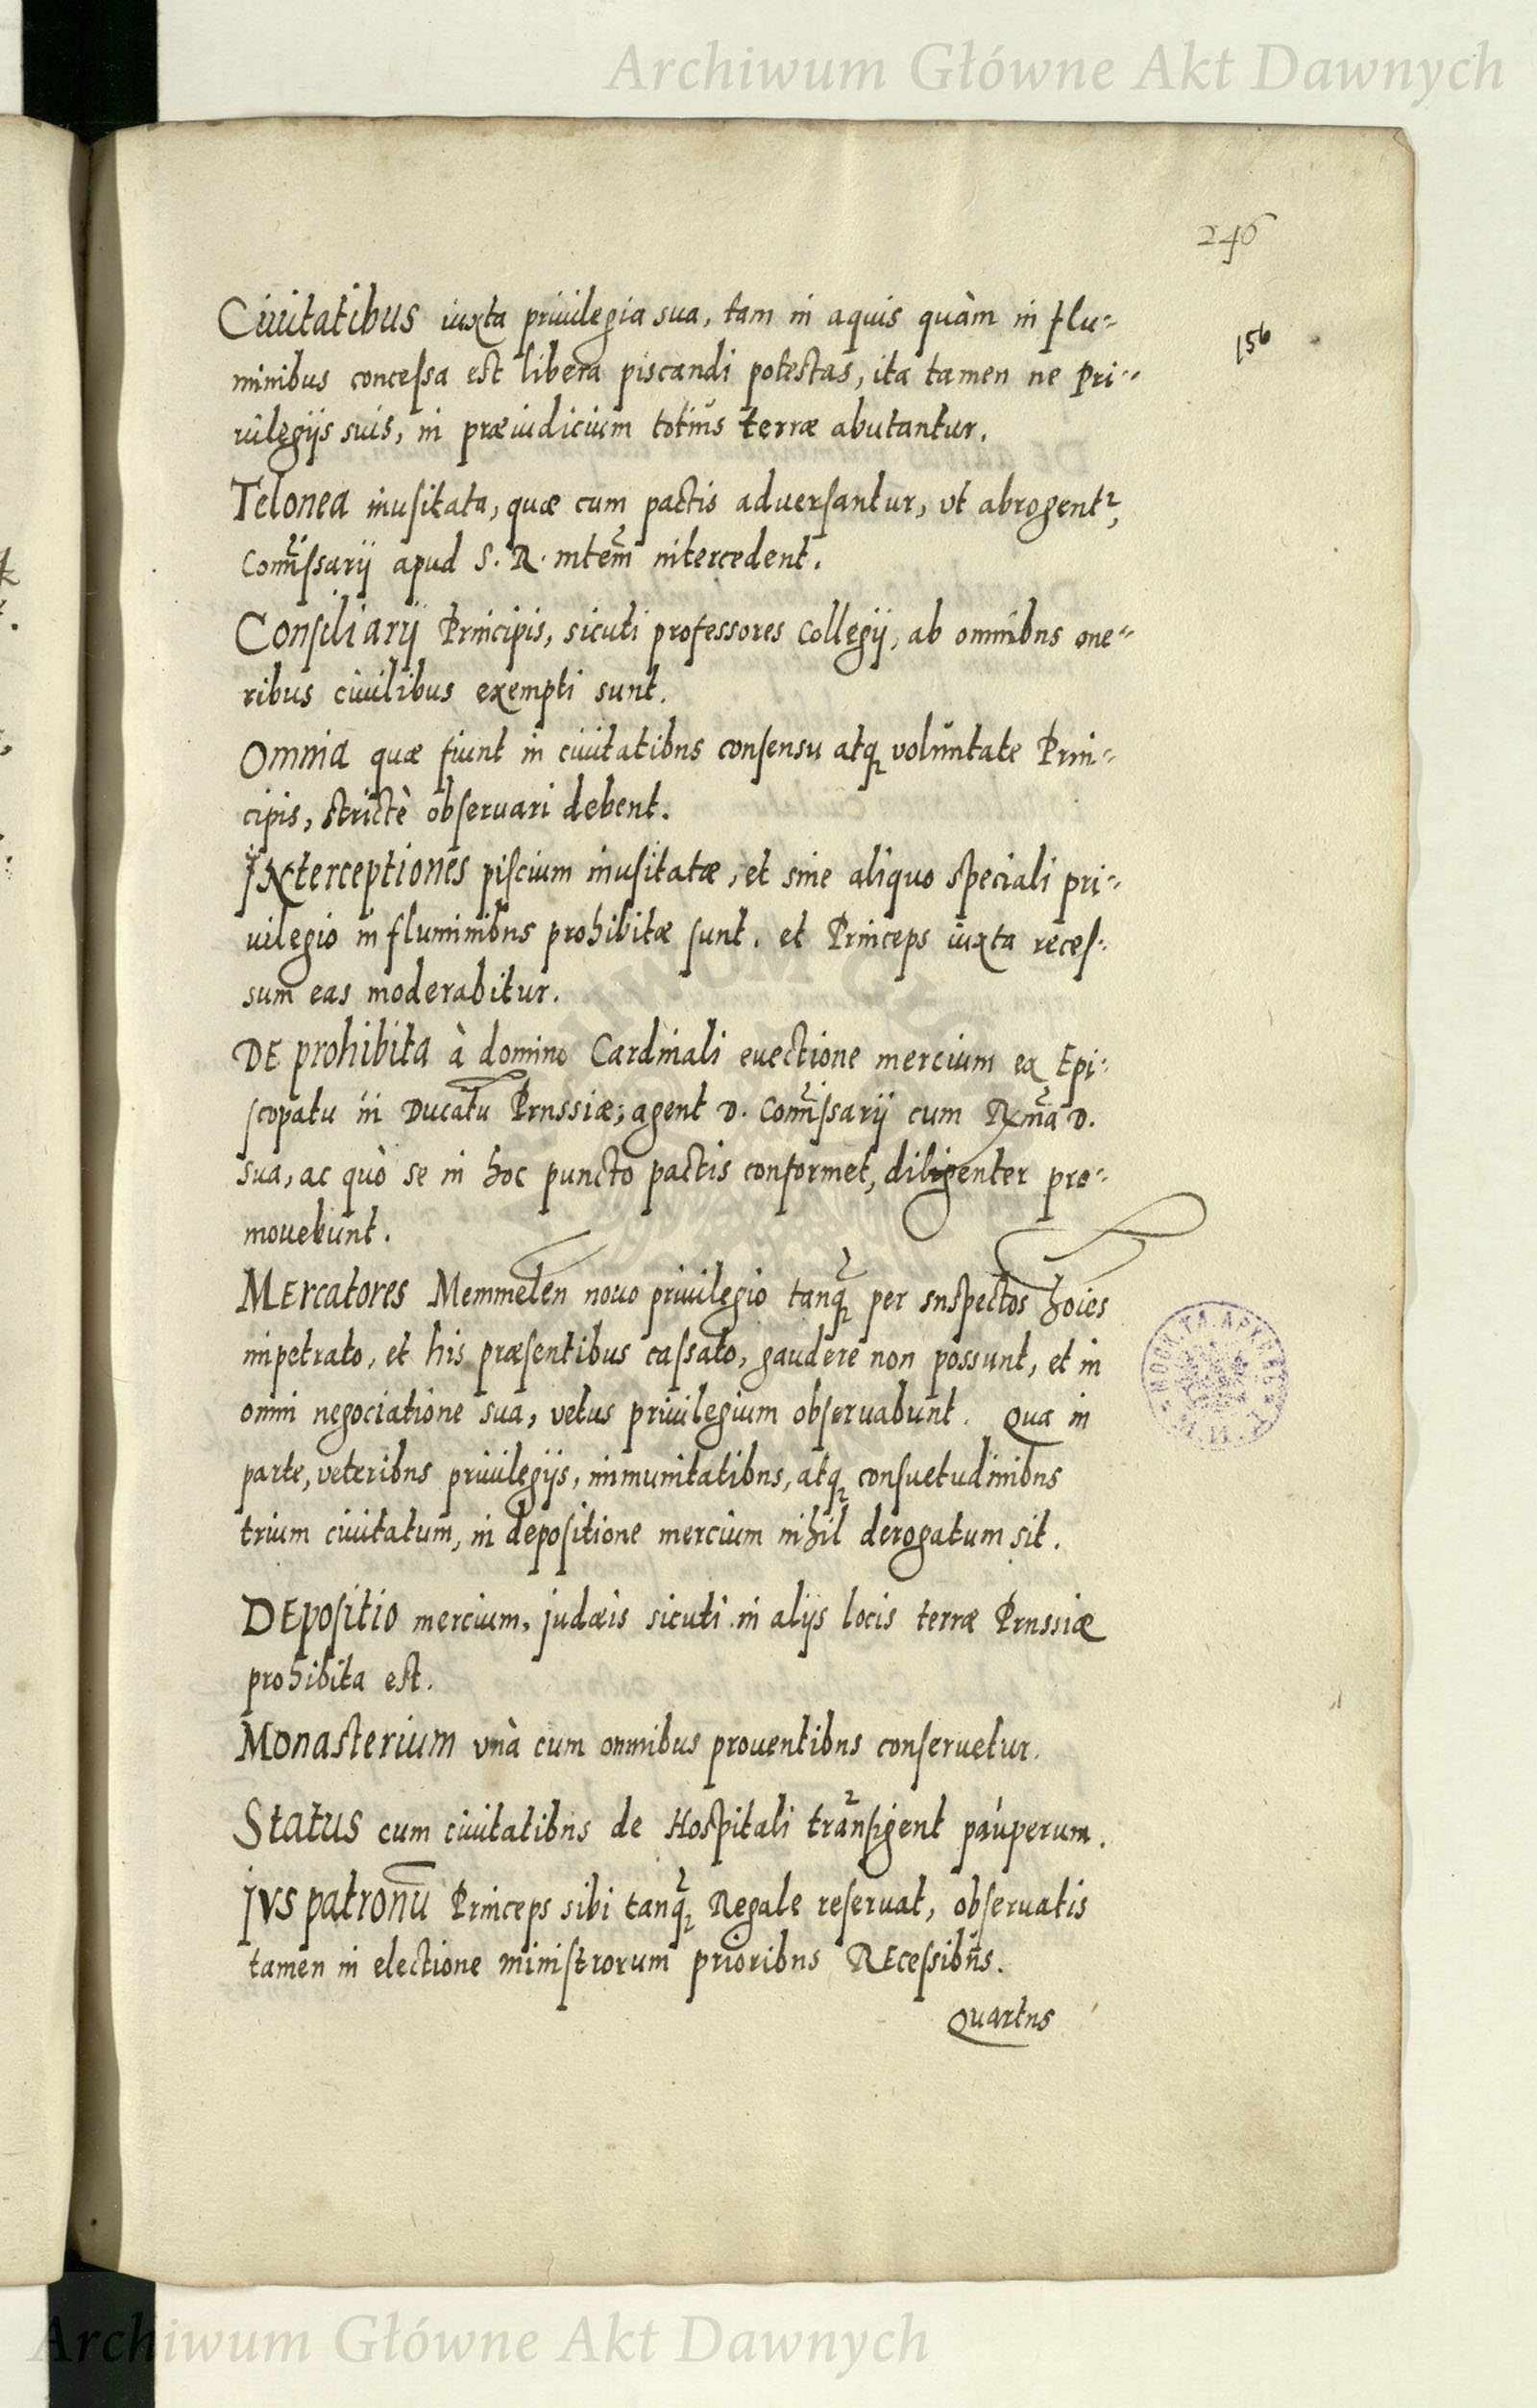 Archiwum Główne Akt Dawnych
246
156
Ciuitatibus iuxta priuilegia sua, tam in aquis quàm in flu-
minibus concessa est libera piscandi potestas, ita tamen ne Pri-
uilegijs suis, in præiudicium totius terræ abutantur.
Telonea inusitata, quæ cum pactis aduersantur, vt abrogent²,
Com̃issarij apud S. R. mtem̃ intercedent.
Consiliarij Principis, sicuti professores Collegij, ab omnibus one-
ribus ciuilibus exempti sunt.
Omnia quæ fiunt in ciuitatibus consensu atq3 voluntate Prin-
cipis, strictè obseruari debent.
INterceptiones piscium inusitatæ, et sine aliquo speciali pri-
uilegio in fluminibus prohibitæ sunt. et Princeps iuxta reces-
sum eas moderabitur.
DE prohibita à domino Cardinali euectione mercium ex Epi-
scopatu in Ducatu Prussiæ; agent D. Com̃issarij cum Rxm̃a D.
sua, ac quò se in hoc puncto pactis conformet, diligenter pro-
mouebunt.
MErcatores Memmelen nouo priuilegio tanq3 per suspectos hoies
impetrato, et his præsentibus cassato, gaudere non possunt, et in
omni negociatione sua, vetus priuilegium obseruabunt. Qua in
parte, veteribus priuilegijs, immunitatibus, atq3 consuetudinibus
trium ciuitatum, in depositione mercium nihil derogatum sit.
DEpositio mercium, judæis sicuti in alijs locis terræ Prussiæ
prohibita est.
Monasterium vnà cum omnibus prouentibus conseruetur.
Status cum ciuitatibus de Hospitali transigent pauperum.
JVS patronū Princeps sibi tanq3 Regale reseruat, obseruatis
tamen in electione ministrorum prioribus REcessibus.
Quartus
Archiwum Główne Akt Dawnych